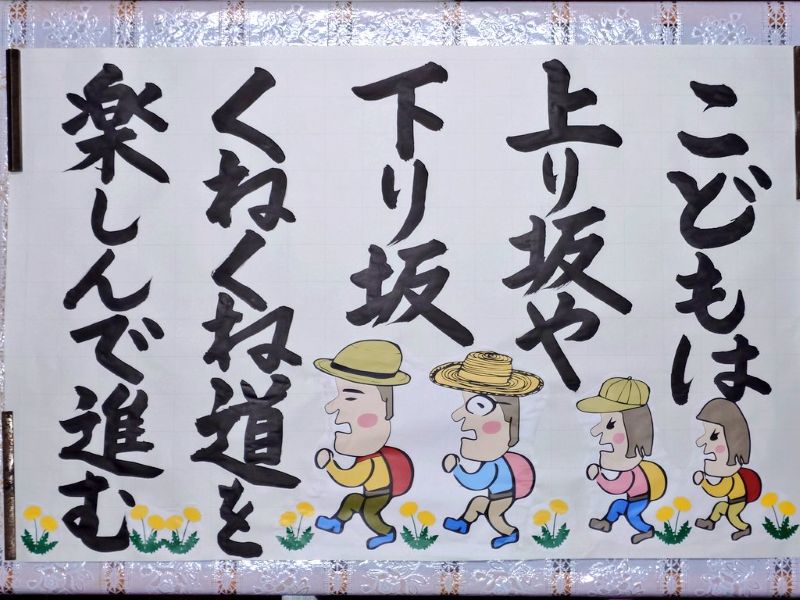 こどもは
上り坂や
下り坂
くねくね道を
楽しんで進む